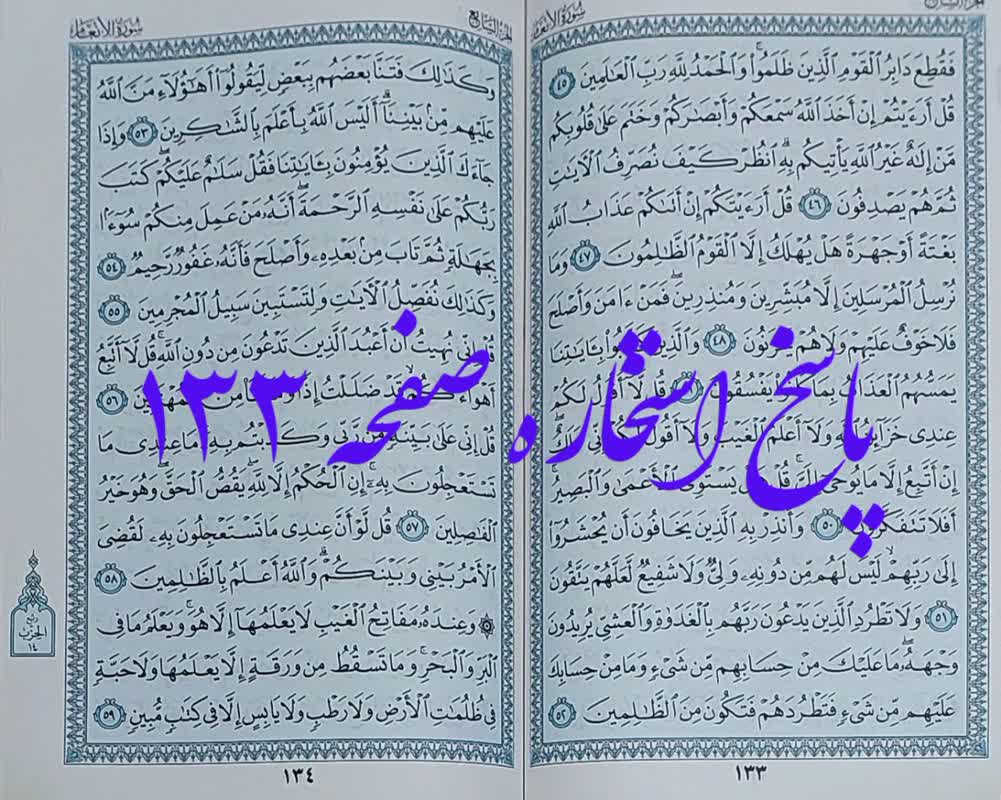 سورة الأنعام
الجزء السابع
فَقُطِعَ دَابِرُ الْقَوْمِ الَّذِينَ ظَلَمُوا وَالْحَمْدُ لِلَّهِ رَبِّ الْعَالَمِينَ ٤٥
قُلْ أَرَءَيْتُمْ إِنْ أَخَذَ اللَّهُ سَمْعَكُمْ وَأَبْصَارَكُمْ وَخَتَمَ عَلَى قُلُوبِكُم
مَّنْ إِلَٰهٌ غَيْرُ اللَّهِ يَأْتِيكُم بِهِ انظُرْ كَيْفَ نُصَرِّفُ الْآيَاتِ
ثُمَّ هُمْ يَصْدِفُونَ ٤٦ قُلْ أَرَءَيْتَكُمْ إِنْ أَتَاكُمْ عَذَابُ اللَّهِ
بَغْتَةً أَوْ جَهْرَةً هَلْ يُهْلَكُ إِلَّا الْقَوْمُ الظَّالِمُونَ ٤٧ وَمَا
نُرْسِلُ الْمُرْسَلِينَ إِلَّا مُبَشِّرِينَ وَمُنذِرِينَ فَمَنْ ءَامَنَ وَأَصْلَحَ
فَلَا خَوْفٌ عَلَيْهِمْ وَلَا هُمْ يَحْزَنُونَ ٤٨ وَالَّذِينَ كَذَّبُوا بِآيَاتِنَا
يَمَسُّهُمُ الْعَذَابُ بِمَا يَفْسُقُونَ قُل لَّا أَقُولُ لَكُمْ
عِندِي خَزَائِنُ اللَّهِ وَلَا أَعْلَمُ الْغَيْبَ وَلَا أَقُولُ لَكُمْ إِنِّي مَلَكٌ
إِنْ أَتَّبِعُ إِلَّا مَا يُوحَىٰ إِلَيَّ قُلْ هَلْ يَسْتَوِي الْأَعْمَىٰ وَالْبَصِيرُ
أَفَلَا تَتَفَكَّرُونَ ٥٠ وَأَنذِرْ بِهِ الَّذِينَ يَخَافُونَ أَن يُحْشَرُوا
إِلَىٰ رَبِّهِمْ لَيْسَ لَهُم مِّن دُونِهِ وَلِيٌّ وَلَا شَفِيعٌ لَّعَلَّهُمْ يَتَّقُونَ
٥١ وَلَا تَطْرُدِ الَّذِينَ يَدْعُونَ رَبَّهُم بِالْغَدَوٰةِ وَالْعَشِيِّ يُرِيدُونَ
وَجْهَهُ مَا عَلَيْكَ مِنْ حِسَابِهِم مِّن شَيْءٍ وَمَا مِنْ حِسَابِكَ
عَلَيْهِم مِّن شَيْءٍ فَتَطْرُدَهُمْ فَتَكُونَ مِنَ الظَّالِمِينَ ٥٢
١٣٣
الجزء السابع
سورة الأنعام
وَكَذَٰلِكَ فَتَنَّا بَعْضَهُم بِبَعْضٍ لِّيَقُولُوا أَهَٰؤُلَاءِ مَنَّ اللَّهُ
عَلَيْهِم مِّن بَيْنِنَا أَلَيْسَ اللَّهُ بِأَعْلَمَ بِالشَّاكِرِينَ ٥٣ وَإِذَا
جَاءَكَ الَّذِينَ يُؤْمِنُونَ بِآيَاتِنَا فَقُلْ سَلَامٌ عَلَيْكُمْ كَتَبَ
رَبُّكُمْ عَلَىٰ نَفْسِهِ الرَّحْمَةَ أَنَّهُ مَنْ عَمِلَ مِنكُمْ سُوءًا
بِجَهَالَةٍ ثُمَّ تَابَ مِن بَعْدِهِ وَأَصْلَحَ فَأَنَّهُ غَفُورٌ رَّحِيمٌ ٥٤
وَكَذَٰلِكَ نُفَصِّلُ الْآيَاتِ وَلِتَسْتَبِينَ سَبِيلُ الْمُجْرِمِينَ ٥٥
قُلْ إِنِّي نُهِيتُ أَنْ أَعْبُدَ الَّذِينَ تَدْعُونَ مِن دُونِ اللَّهِ قُل لَّا أَتَّبِعُ
أَهْوَاءَكُمْ قَدْ ضَلَلْتُ إِذًا وَمَا أَنَا مِنَ الْمُهْتَدِينَ ٥٦
قُلْ إِنِّي عَلَىٰ بَيِّنَةٍ مِّن رَّبِّي وَكَذَّبْتُم بِهِ مَا عِندِي مَا
تَسْتَعْجِلُونَ بِهِ إِنِ الْحُكْمُ إِلَّا لِلَّهِ يَقُصُّ الْحَقَّ وَهُوَ خَيْرُ
الْفَاصِلِينَ ٥٧ قُل لَّوْ أَنَّ عِندِي مَا تَسْتَعْجِلُونَ بِهِ لَقُضِيَ
الْأَمْرُ بَيْنِي وَبَيْنَكُمْ وَاللَّهُ أَعْلَمُ بِالظَّالِمِينَ ٥٨
۞ وَعِندَهُ مَفَاتِحُ الْغَيْبِ لَا يَعْلَمُهَا إِلَّا هُوَ وَيَعْلَمُ مَا فِي
الْبَرِّ وَالْبَحْرِ وَمَا تَسْقُطُ مِن وَرَقَةٍ إِلَّا يَعْلَمُهَا وَلَا حَبَّةٍ
فِي ظُلُمَاتِ الْأَرْضِ وَلَا رَطْبٍ وَلَا يَابِسٍ إِلَّا فِي كِتَابٍ مُّبِينٍ ٥٩
ربع
الحزب
١٤
١٣٤
پاسخ استخاره صفحه ۱۳۳